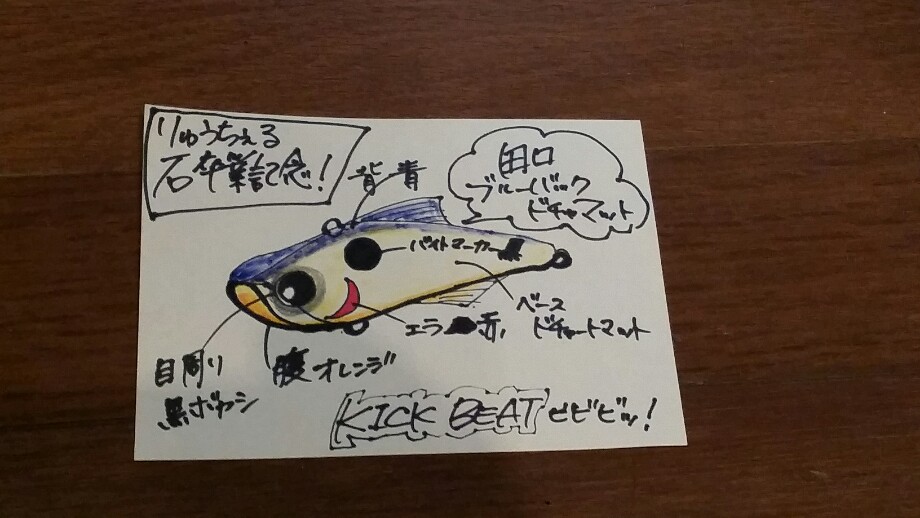 りゅうちぇる
石卒業記念!
背 青
田口
ブルーバック
ドチャマット
バイトマーカー黒
ベース
ドチャートマット
エラ 赤
目周り
黒ボカシ
腹オレンジ
KICK BEAT ビビビッ!